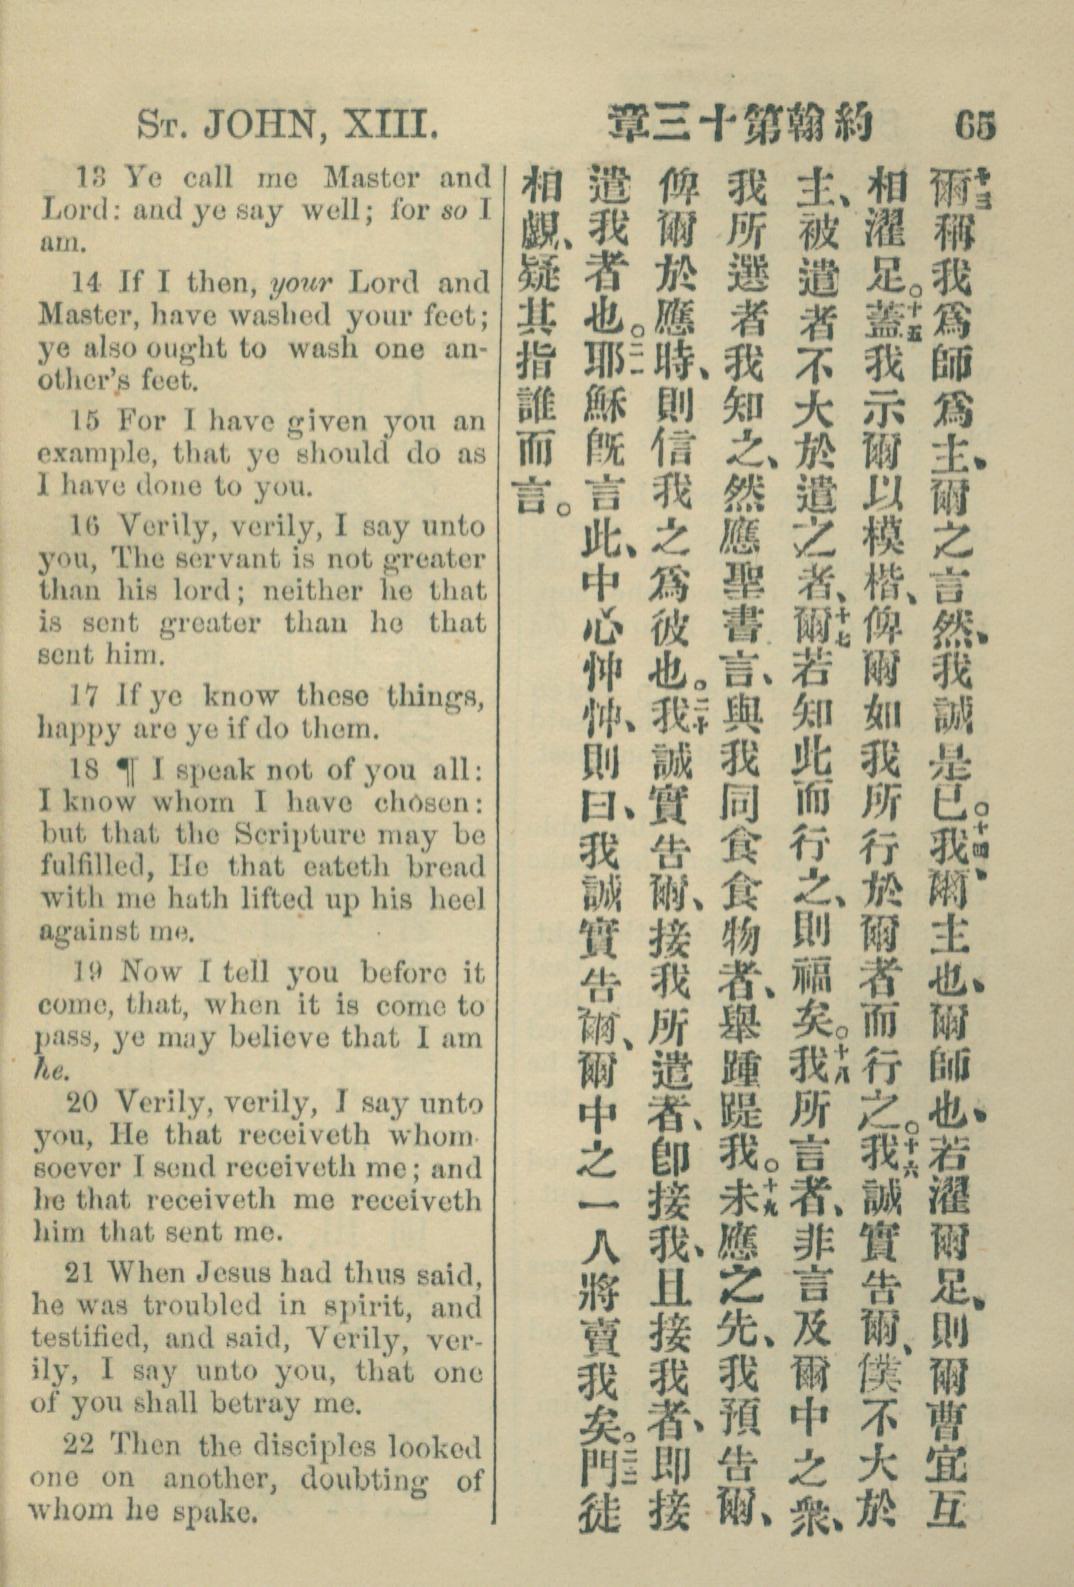 St. JOHN, XIII.
章三十第翰約
65
13 Ye call me Master and
Lord: and ye say well; for so I
am.
14 If I then, your Lord and
Master, have washed your feet;
ye also ought to wash one an-
other's feet.
15 For I have given you an
example, that ye should do as
I have done to you.
16 Verily, verily, I say unto
you, The servant is not greater
than his lord; neither he that
is sent greater than he that
sent him.
17 If ye know these things,
happy are ye if do them.
18 ¶ I speak not of you all:
I know whom I have chosen:
but that the Scripture may be
fulfilled, He that eateth bread
with me hath lifted up his heel
against me.
19 Now I tell you before it
come, that, when it is come to
pass, ye may believe that I am
he.
20 Verily, verily, I say unto
you, He that receiveth whom-
soever I send receiveth me; and
he that receiveth me receiveth
him that sent me.
21 When Jesus had thus said,
he was troubled in spirit, and
testified, and said, Verily, ver-
ily, I say unto you, that one
of you shall betray me.
22 Then the disciples looked
one on another, doubting of
whom he spake.
十三爾稱我爲師爲主、爾之言然、我誠是已。十四我、爾主也、爾師也、若濯爾足、則爾曹宜互
相濯足。十五蓋我示爾以模楷、俾爾如我所行於爾者而行之。十六我誠實告爾、僕不大於
主、被遣者不大於遣之者、十七爾若知此而行之、則福矣。十八我所言者、非言及爾中之衆、
我所選者我知之、然應聖書言、與我同食食物者、舉踵踶我。十九未應之先、我預告爾、
俾爾於應時、則信我之爲彼也。二十我誠實告爾、接我所遣者、卽接我、且接我者、即接
遣我者也。二一耶穌旣言此、中心忡忡、則曰、我誠實告爾、爾中之一人將賣我矣。二二門徒
相覷、疑其指誰而言。